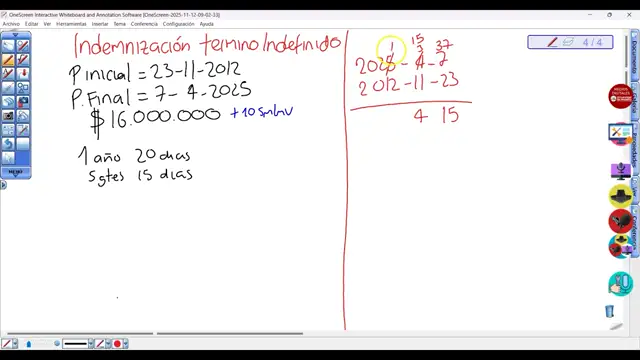 OneScreen Interactive Whiteboard and Annotation Software (OneScreen-2025-11-12-09-02-33)
Archivo Editar Ver Herramientas Insertar Dibujar Tema Conferencia Complemento Ayuda
Indemnización termino Indefinido
P inicial = 23-11-2012
P. Final = 7-4-2025
$ 16.000.000 + 10 Smlmv
1 año 20 dias
sgtes 15 dias
1 15 37
3
2025 - 4 - 7
2012 - 11 - 23
4 15
4 / 4
MENÚ